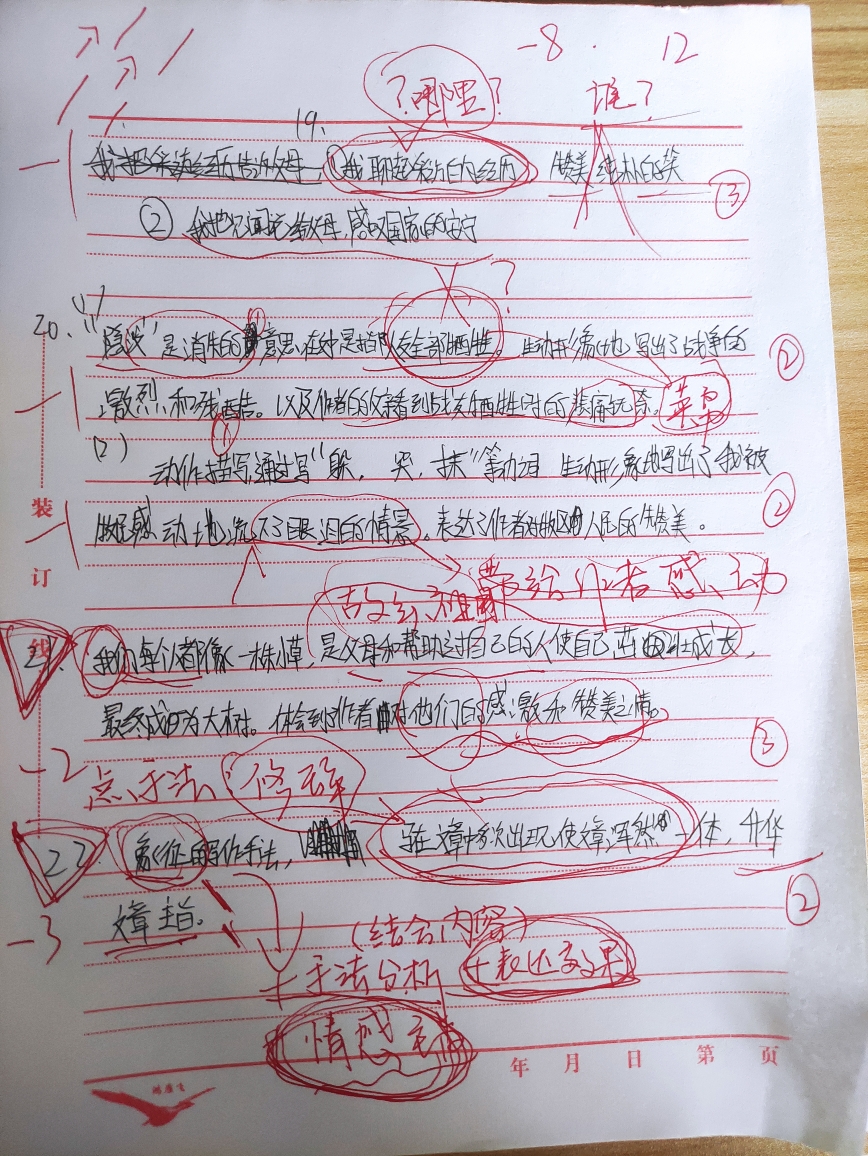 -8. 12
？哪里？ 谁？
19.
我把采访经历告诉父母，①我聊起采访的经历 赞美纯朴的笑
③
② 我把 给父母，感叹国家的安宁
？
20. (1)
"隐没"是消失的意思，在文中是指队友全部牺牲。生动形象地写出了战争的
②
激烈和残酷。以及作者的亲看到战友牺牲时的悲痛无奈。
(2) ①
动作描写，通过写"躲，哭，抹"等动词 生动形象地写出了我被
感动地流下了眼泪的情景。表达了作者对 人民的赞美。
②
带给作者感动
21. 我们每个人都像一株小草，是父母和帮助过自己的人使自己茁壮成长，
最终成为大树。体会到作者对他们的感激和赞美之情。
③
-2
点手法：修辞
22. 象征的写作手法， 在文章中多次出现，使文章浑然一体，升华
②
文章主旨。
-3
(结合内容)
+手法分析 +表达效果
+情感主旨
装
订
线
年 月 日 第 页